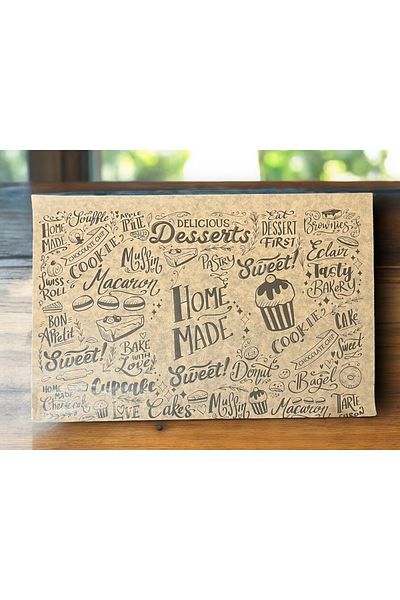 HOME
MADE
Souffle
CHOCOLATE CHIP
COOKIE
APPLE
PIE
DELICIOUS
Desserts
Eat
DESSERT
FIRST
Brownies
Eclair
SWISS
ROLL
Muffin
PASTRY
Sweet!
Tasty
BAKERY
Macaron
HOME
MADE
BON
Appetit
Sweet!
BAKE
WITH
Love
COOKIE
CHOCOLATE CHIP
CAKE
Sweet
HOME
MADE
Cheesecake
Cupcake
Sweet!
Donut
Bagel
LOVE Cakes
Muffin
Macaron
TARTE